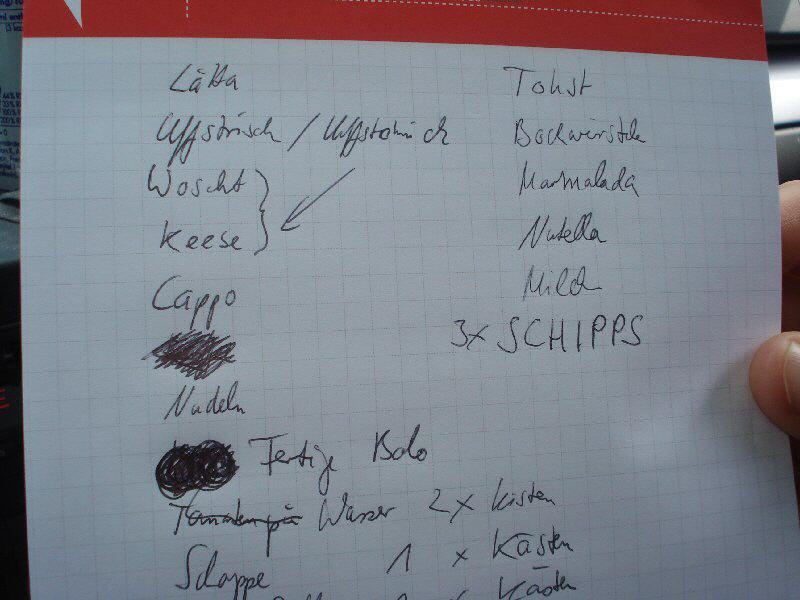 Lätta
Uffstrisch / Uffstrisch
Woscht
Keese
Cappo
Nudeln
Fertige Bolo
Wasser 2x Kisten
Schoppe 1 x Kästen
Kästen
Tohst
Bockwürstche
Marmalada
Nutella
Milch
3x SCHIPPS